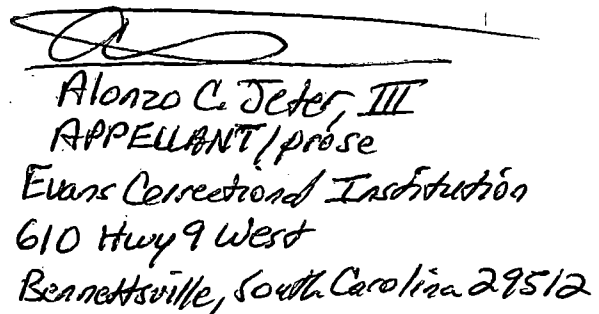 Alonzo C. Jeter, III
APPELLANT/prose
Evans Correctional Institution
610 Hwy 9 West
Bennettsville, South Carolina 29512